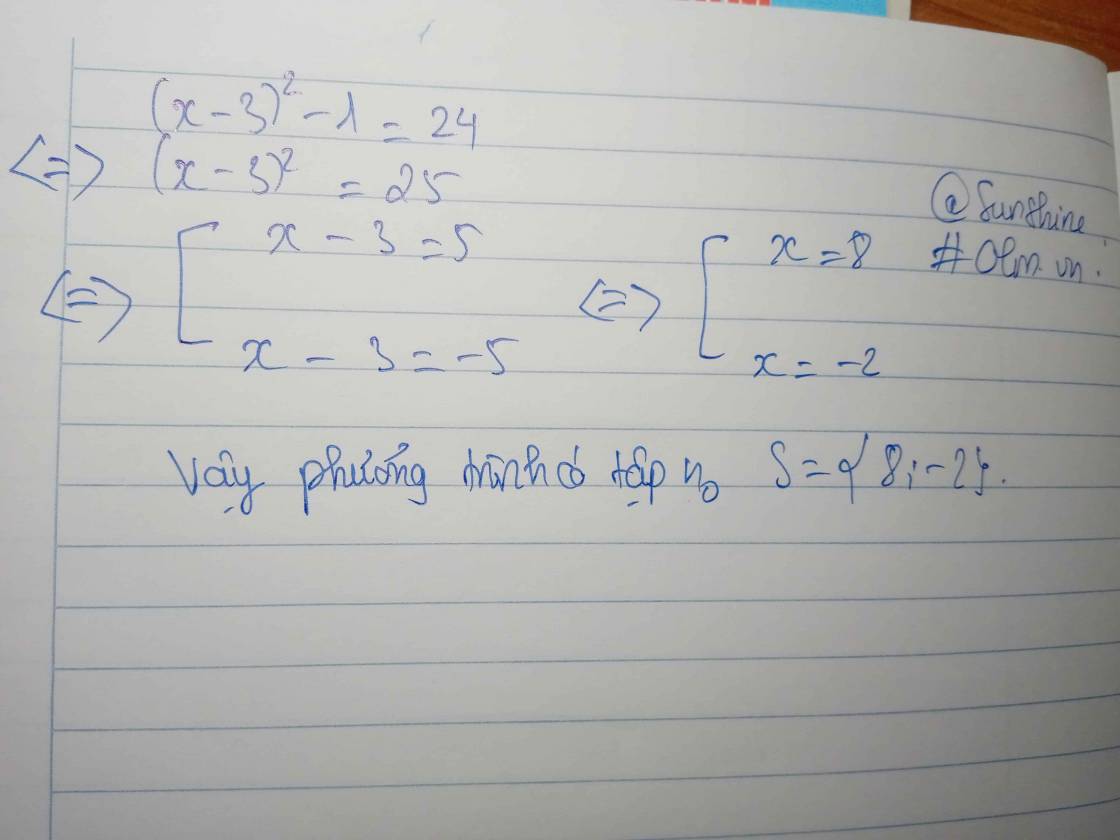 (x - 3)² - 1 = 24
<=> (x - 3)² = 25
<=> [ x - 3 = 5
x - 3 = -5
<=> [ x = 8
x = -2
@Sunshine
#Olm.vn.
Vậy phương trình có tập n₀ S = { 8; -2 }.